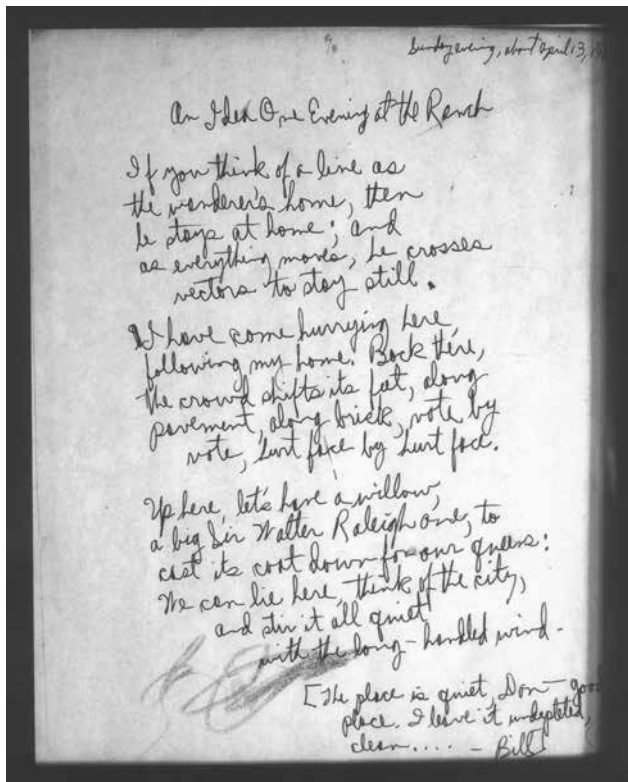 Sunday evening, about April 13, 19
An Idea One Evening at the Ranch
If you think of a line as
the wanderer's home, then
he stays at home; and
as everything moves, he crosses
vectors to stay still.
I have come hurrying here,
following my home. Back there,
the crowd shifts its feet, along
pavement, along brick, vote by
vote, hurt face by hurt face.
Up here, let's have a willow,
a big Sir Walter Raleigh one, to
cast its coat down for our queens:
We can lie here, think of the city,
and stir it all quiet
with the long-handled wind.
[The place is quiet, Don — good
place. I leave it undepleted,
clean.... — Bill]